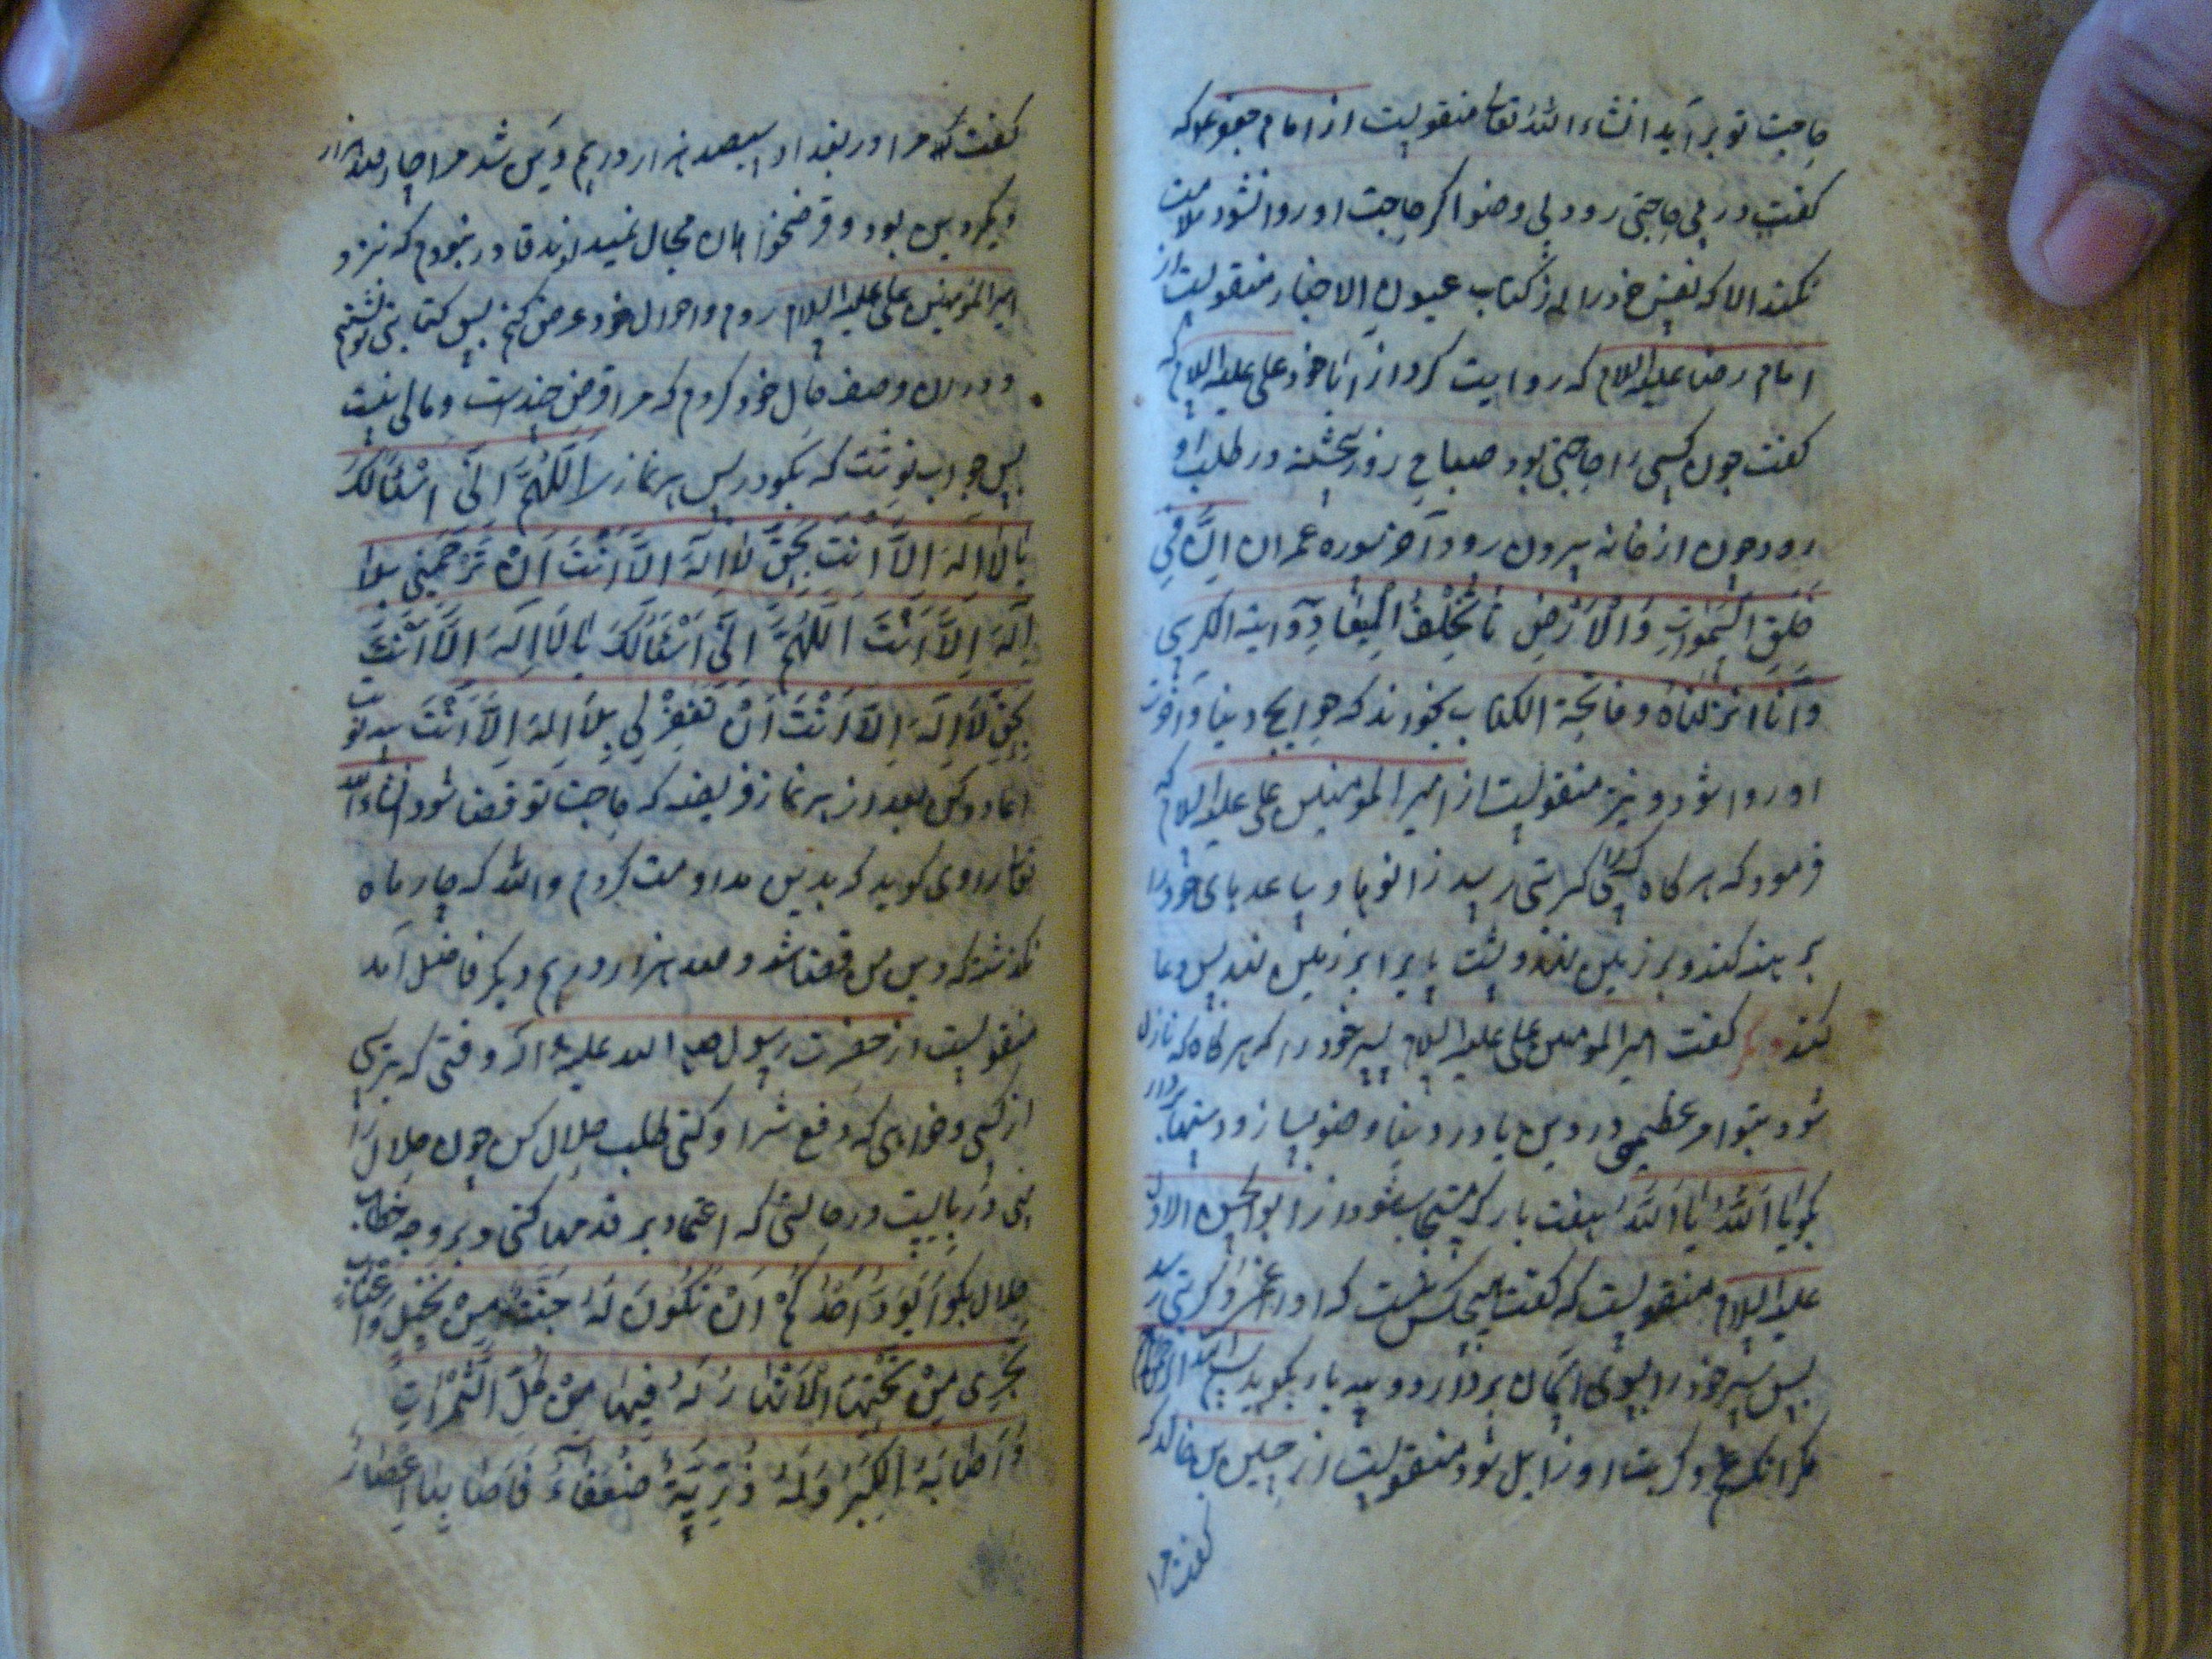 حاجت تو برآید انشاء الله تعا منقولیست از امام جعفر ع که
کفت در پی حاجتی رود بی وضو اکر حاجت او روا نشود ملامت
نکند الا که نفس خود را در کتاب عیون الاخبار منقولیست از
امام رضا علیه السلام که روایت کرد از آبا خود علی علیه السلام که
کفت چون کسی را حاجتی بود صباح روز پنجشنبه در طلب او
رود چون از خانه بیرون رود آخر سوره عمران اِنَّ فِی
خَلقِ السَّمٰواتِ وَالْاَرْضِ تا تُخْلِفُ الْمِیعٰادِ و آیة الکرسی
و اَنّا اَنْزَلْنٰاهُ و فاتحة الکتاب بخواند که حوایج دنیا و آخرت
او روا شود و نیز منقولیست از امیر المومنین علی علیه السلام که
فرمود که هرکاه کسی را کربتی رسد زانوها و ساعدهای خود را
برهنه کند و بر زمین نهد و پشت پا برابر زمین نهد پس دعا
کند کفت امیر المومنین علی علیه السلام پسر خود را که هرکاه که نازل
شود بتو امر عظیمی در دین یا در دنیا وضو بساز و دستها بردار
بکو یٰا اَللّٰهُ یٰا اَللّٰهُ هفت بار که مستجاب شود از ابو الحسن الاول
علیه السلام منقولیست که کفت هیچکس نیست که او را غمی و کربتی رسد
پس سر خود را بسوی آسمان بردارد و سه بار بکوید بسم الله الرحمن الرحیم
مکر آنکه غم و کربت او زایل شود منقولیست از حسین بن خالد که
کفت مرا
کفت که مرا در بغداد سیصد هزار درهم دین شد مرا چارصد هزار
دیکر دین بود و قرضخواهان مجال نمیدادند قادر نبودم که نزد
امیر المومنین علی علیه السلام روم و احوال خود عرض کنم پس کتابتی نوشتم
و در آن وصف حال خود کردم که مرا قرض چندست و مالی نیست
پس جواب نوشت که بکو در پس هر نماز اَللّٰهُمَّ اِنّی اَسْئَالُکَ
یٰا لا اِلٰهَ اِلاَّ اَنْتَ بِحَقِّ لا اِلٰهَ اِلاَّ اَنْتَ اَنْ تَرْحَمَنِی بِلا
اِلٰهَ اِلاَّ اَنْتَ اَللّٰهُمَّ اِنّی اَسْئَالُکَ یٰا لا اِلٰهَ اِلاَّ اَنْتَ
بِحَقِّ لا اِلٰهَ اِلاَّ اَنْتَ اَنْ تَغْفِرَ لِی بِلا اِلٰهَ اِلاَّ اَنْتَ سه نوبت
اعاده کن بعد از هر نماز فریضه که حاجت تو قضا شود انشاء الله
تعا راوی کوید که بدین مداومت کردم والله که چار ماه
نکذشت که دین من قضا شد و صد هزار درهم دیکر فاضل آمد
منقولیست از حضرت رسول صلی الله علیه و آله وقتی که بترسی
از کسی و خواهی که دفع شر او کنی طلب خلال کن چون خلال را
در حالتی که اعتماد بر قدمها کنی و بر وجه خطاب
خلال بکو اَیَوَدُّ اَحَدُکُمْ اَنْ تَکُونَ لَهُ جَنَّةٌ مِنْ نَخِیلٍ وَاَعْنٰابٍ
تَجْرِی مِنْ تَحْتِهَا الْاَنْهٰارُ لَهُ فِیهٰا مِنْ کُلِّ الثَّمَرٰاتِ
وَاَصٰابَهُ الْکِبَرُ وَلَهُ ذُرِّیَّةٌ ضُعَفٰآءُ فَاَصٰابَهٰا اِعْصٰارٌ